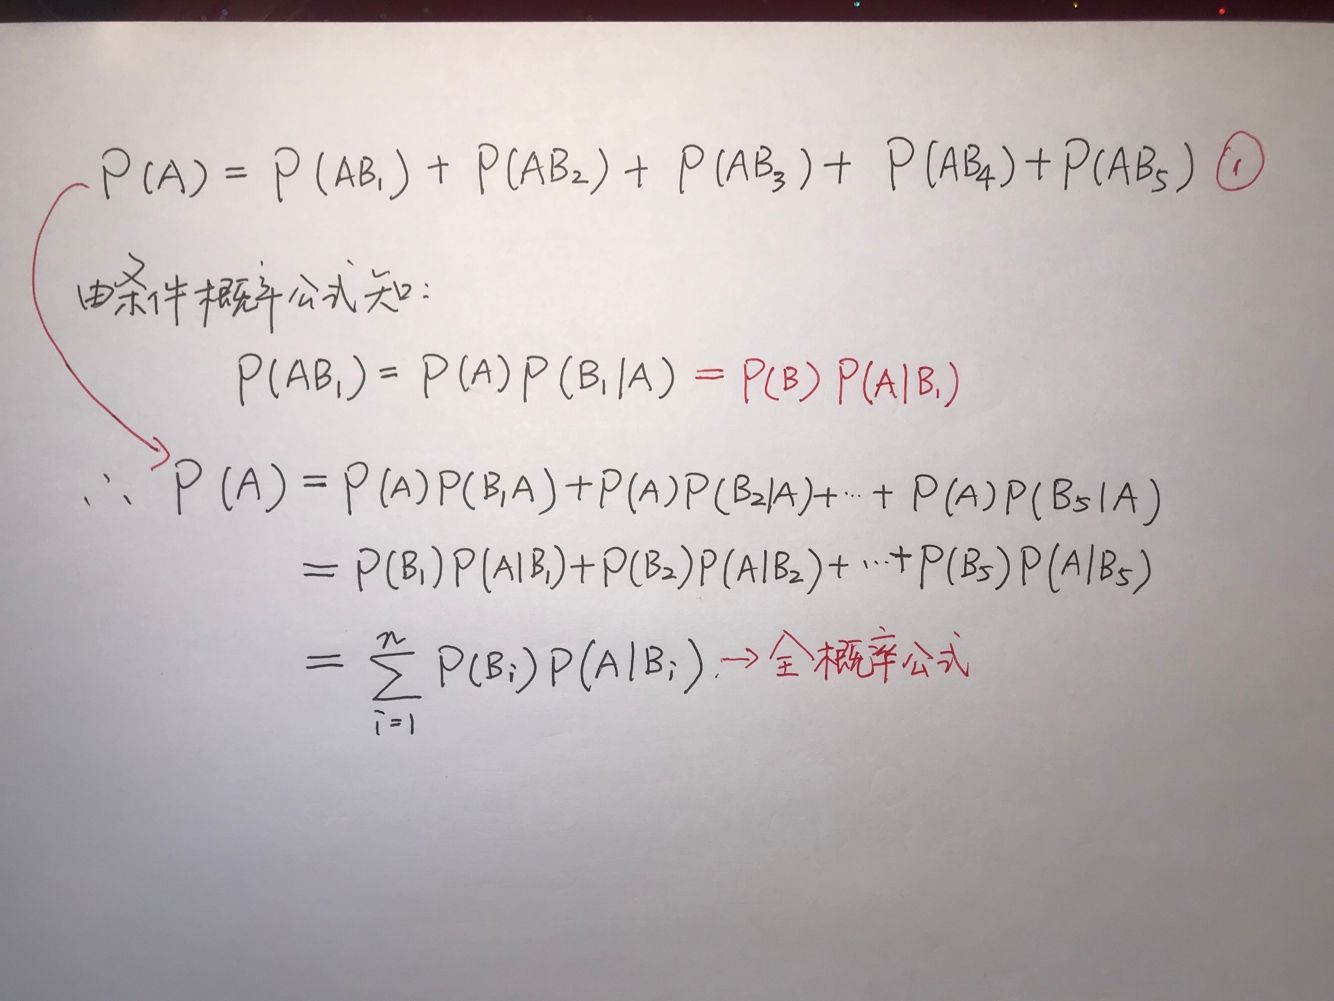 P(A) = P(AB₁) + P(AB₂) + P(AB₃) + P(AB₄) + P(AB₅) ①
由条件概率公式知:
P(AB₁) = P(A)P(B₁|A) = P(B)P(A|B₁)
∴ P(A) = P(A)P(B₁A) + P(A)P(B₂|A) + … + P(A)P(B₅|A)
= P(B₁)P(A|B₁) + P(B₂)P(A|B₂) + … + P(B₅)P(A|B₅)
= ∑ᵢ₌₁ⁿ P(Bᵢ)P(A|Bᵢ). → 全概率公式